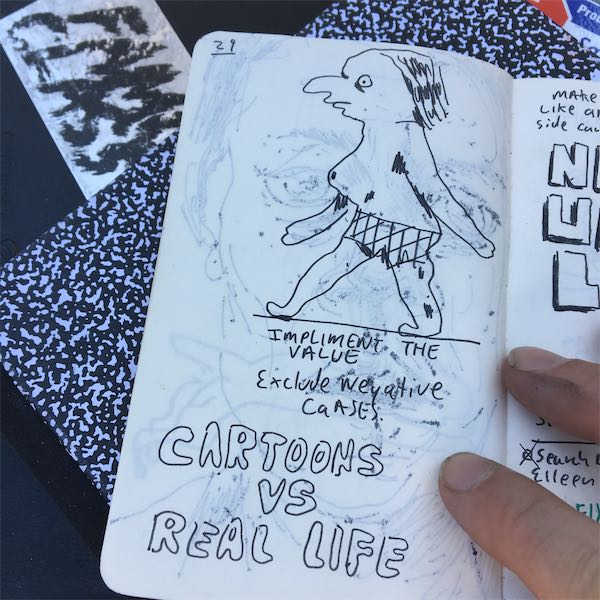 29
IMPLIMENT THE
VALUE
Exclude Negative
CaASES.
CARTOONS
VS
REAL LIFE
MAKE
Like a
side
N
Search
Eileen